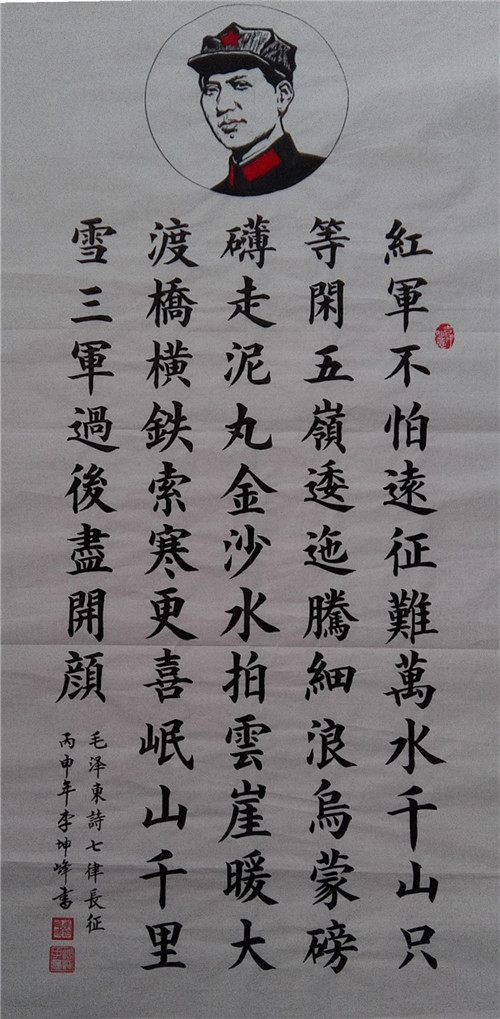 紅軍不怕遠征難萬水千山只
等閑五嶺逶迤騰細浪烏蒙磅
礴走泥丸金沙水拍雲崖暖大
渡橋横鉄索寒更喜岷山千里
雪三軍過後盡開顔
毛泽東詩七律長征
丙申年李坤峰書